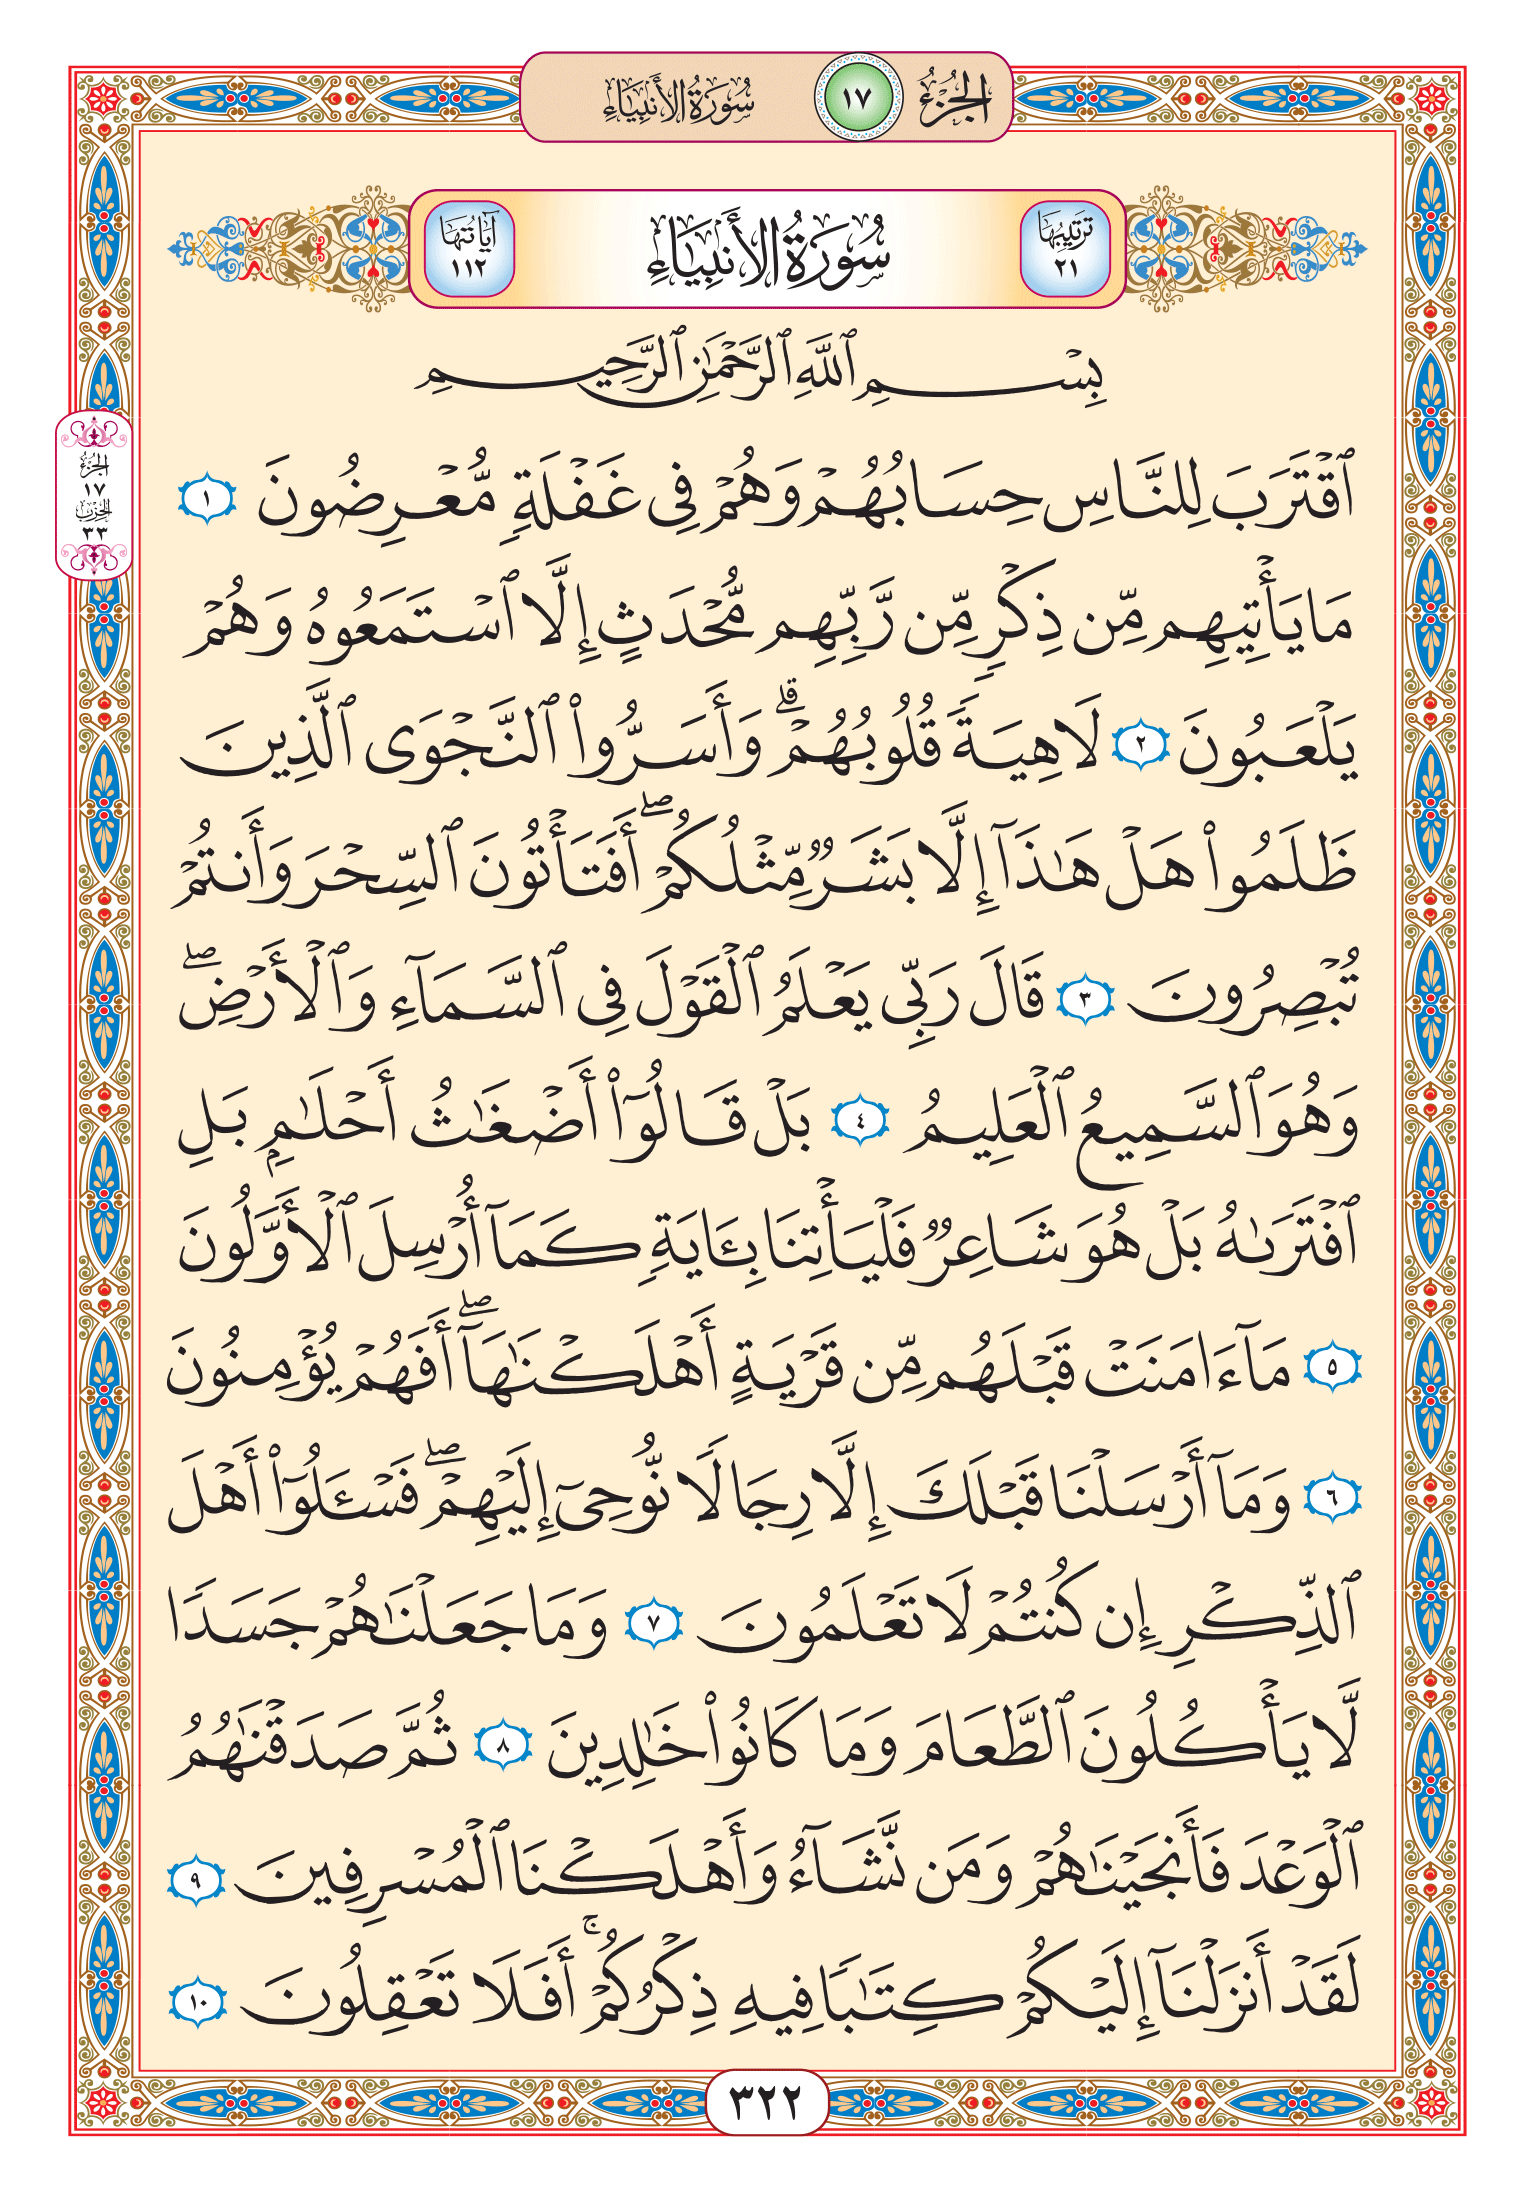 الجُزْءُ ١٧ سُورَةُ الأَنبِيَاءِ
تَرتِيبُهَا ٢١ سُورَةُ الأَنبِيَاءِ آيَاتُهَا ١١٢
بِسْمِ ٱللَّهِ ٱلرَّحْمَٰنِ ٱلرَّحِيمِ
ٱقْتَرَبَ لِلنَّاسِ حِسَابُهُمْ وَهُمْ فِى غَفْلَةٍ مُّعْرِضُونَ ١
مَا يَأْتِيهِم مِّن ذِكْرٍ مِّن رَّبِّهِم مُّحْدَثٍ إِلَّا ٱسْتَمَعُوهُ وَهُمْ
يَلْعَبُونَ ٢ لَاهِيَةً قُلُوبُهُمْۗ وَأَسَرُّوا۟ ٱلنَّجْوَى ٱلَّذِينَ
ظَلَمُوا۟ هَلْ هَٰذَآ إِلَّا بَشَرٌ مِّثْلُكُمْۖ أَفَتَأْتُونَ ٱلسِّحْرَ وَأَنتُمْ
تُبْصِرُونَ ٣ قَالَ رَبِّى يَعْلَمُ ٱلْقَوْلَ فِى ٱلسَّمَآءِ وَٱلْأَرْضِۖ
وَهُوَ ٱلسَّمِيعُ ٱلْعَلِيمُ ٤ بَلْ قَالُوٓا۟ أَضْغَٰثُ أَحْلَٰمٍۭ بَلِ
ٱفْتَرَىٰهُ بَلْ هُوَ شَاعِرٌ فَلْيَأْتِنَا بِـَٔايَةٍ كَمَآ أُرْسِلَ ٱلْأَوَّلُونَ
٥ مَآ ءَامَنَتْ قَبْلَهُم مِّن قَرْيَةٍ أَهْلَكْنَٰهَآۖ أَفَهُمْ يُؤْمِنُونَ
٦ وَمَآ أَرْسَلْنَا قَبْلَكَ إِلَّا رِجَالًا نُّوحِىٓ إِلَيْهِمْۖ فَسْـَٔلُوٓا۟ أَهْلَ
ٱلذِّكْرِ إِن كُنتُمْ لَا تَعْلَمُونَ ٧ وَمَا جَعَلْنَٰهُمْ جَسَدًا
لَّا يَأْكُلُونَ ٱلطَّعَامَ وَمَا كَانُوا۟ خَٰلِدِينَ ٨ ثُمَّ صَدَقْنَٰهُمُ
ٱلْوَعْدَ فَأَنجَيْنَٰهُمْ وَمَن نَّشَآءُ وَأَهْلَكْنَا ٱلْمُسْرِفِينَ ٩
لَقَدْ أَنزَلْنَآ إِلَيْكُمْ كِتَٰبًا فِيهِ ذِكْرُكُمْۚ أَفَلَا تَعْقِلُونَ ١٠
الجزء
١٧
الحزب
٣٣
٣٢٢